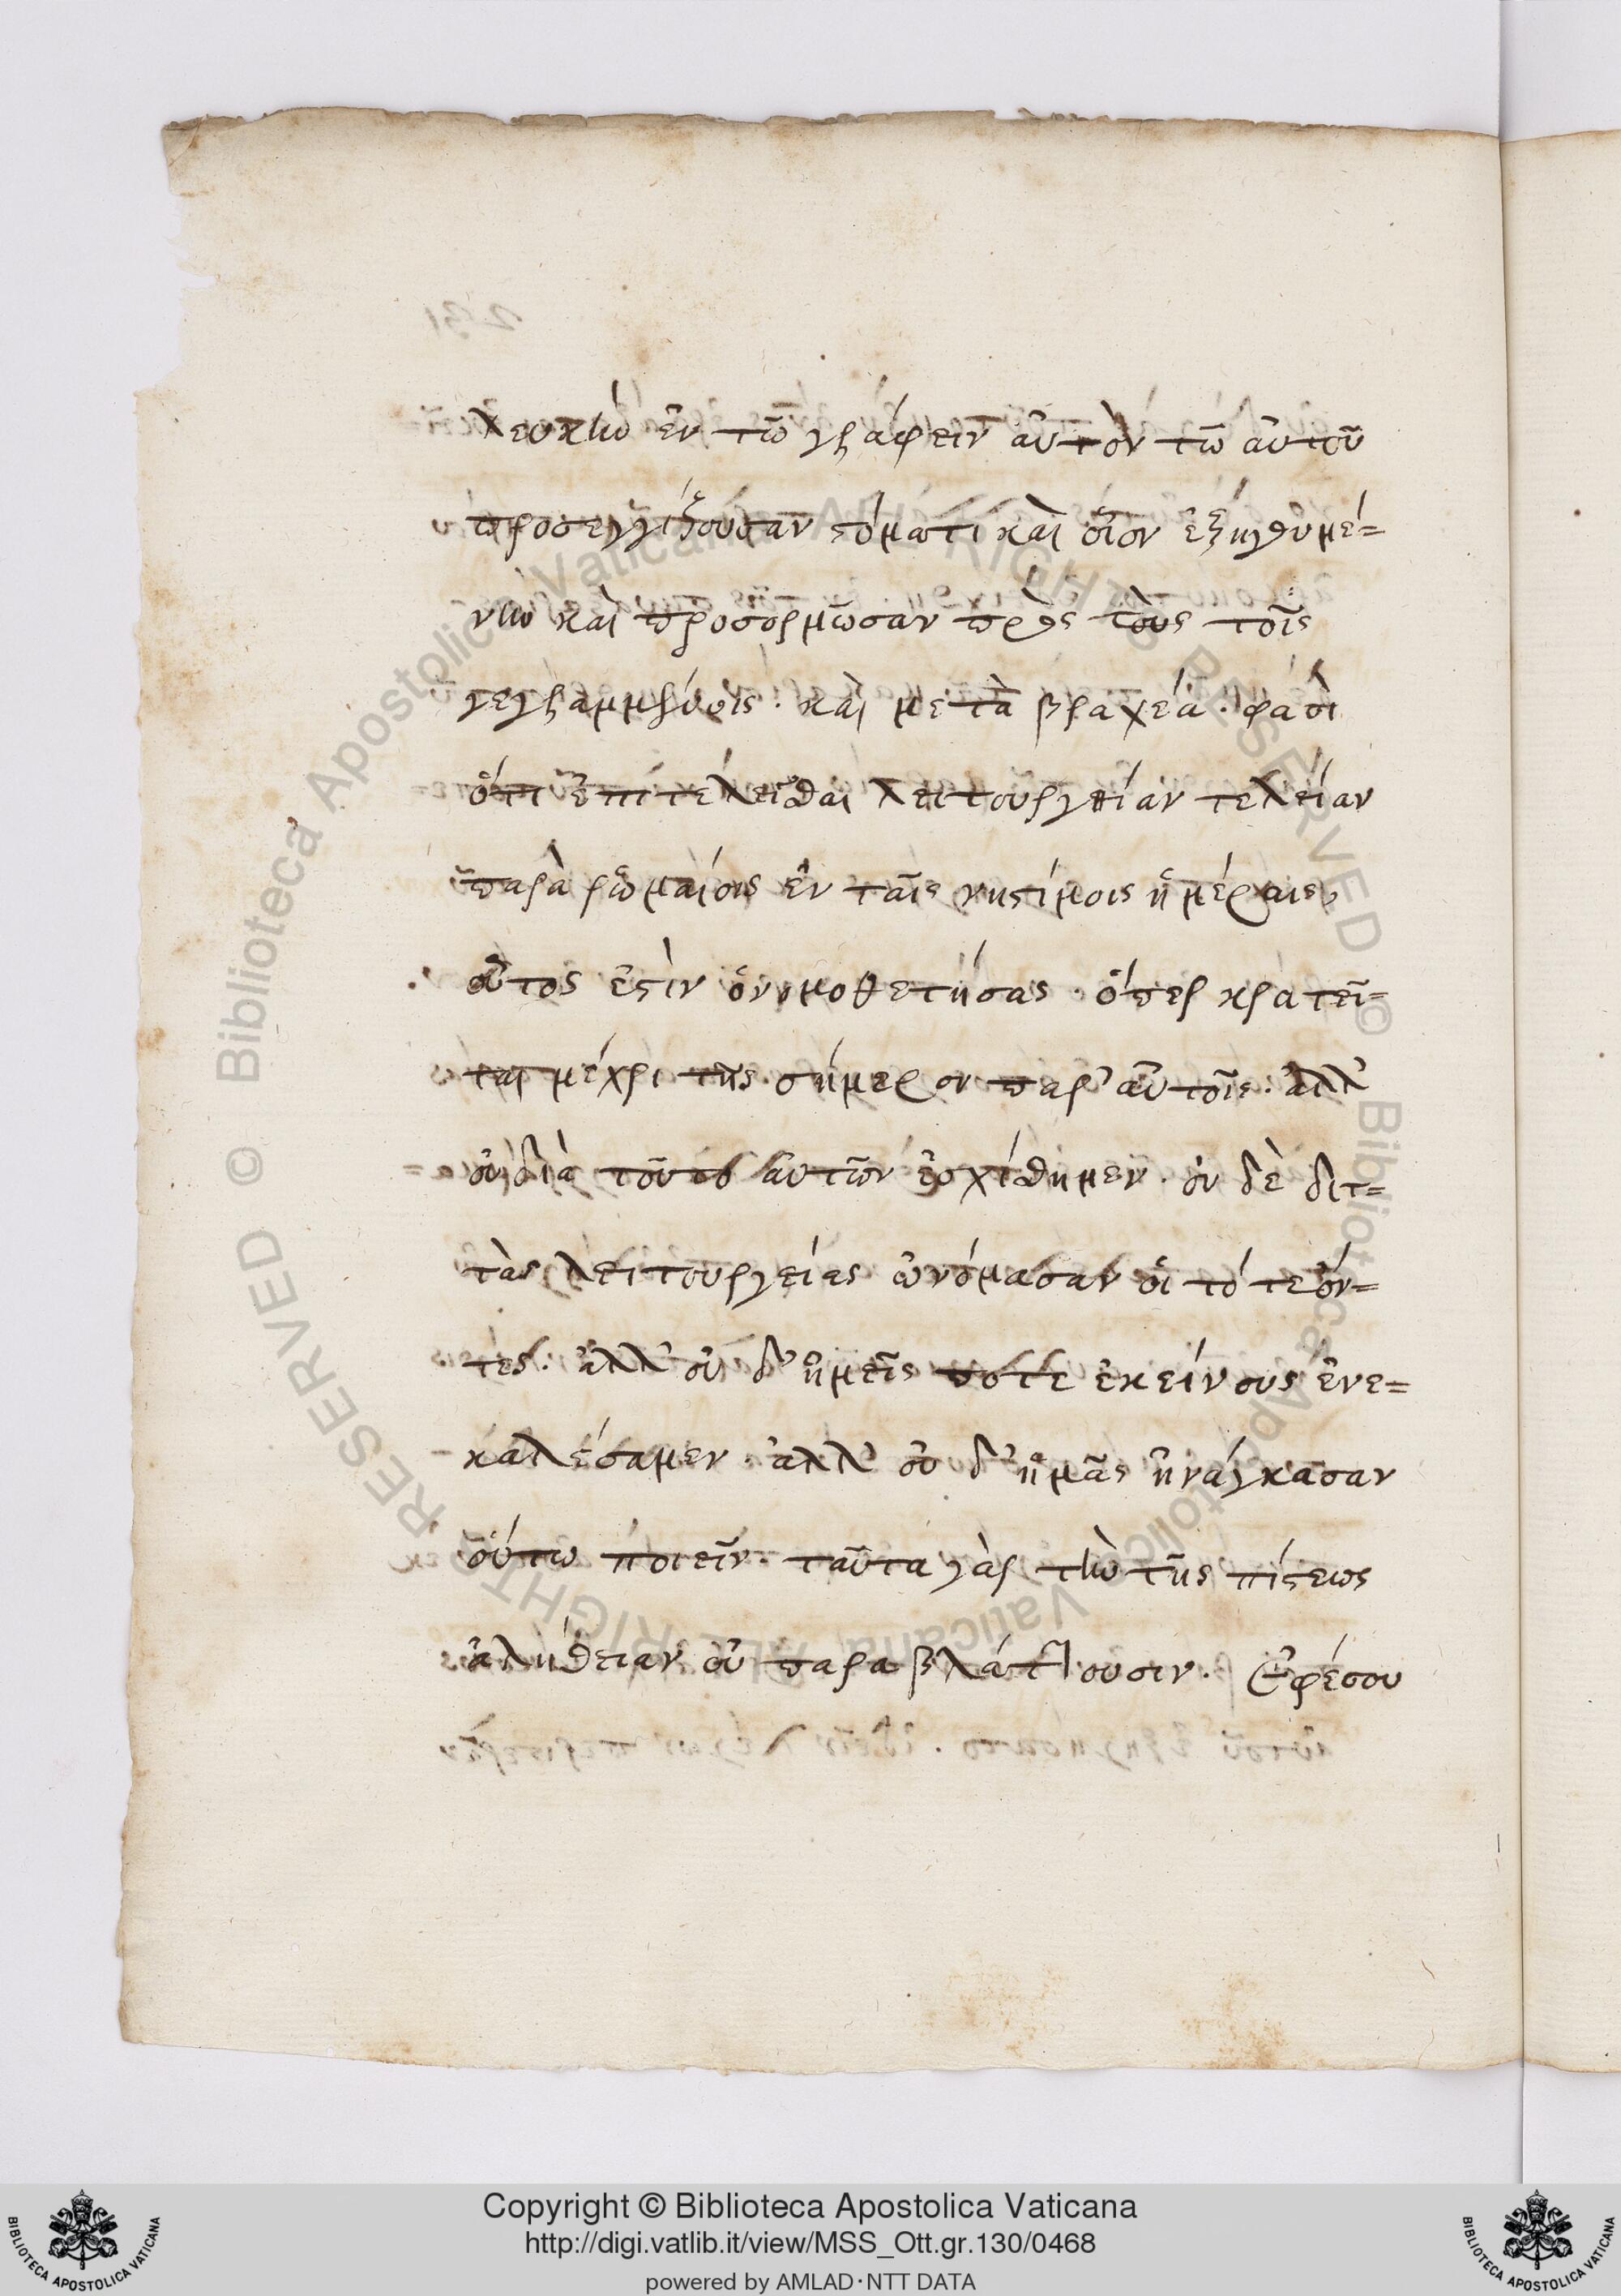 λευκὴν ἐν τῶ γράφειν αὐτὸν τῶ αὐτοῦ
προσεγγίζουσαν στόματι καὶ οἷον ἐξηγουμέ=
νην καὶ προσορμῶσαν πρὸς τοὺς τοῖς
γεγραμμένοις. καὶ μετὰ βραχέα. φασὶ
ὅτι ἐπιτελεῖσθαι λειτουργείαν τελείαν
παρὰ ῥωμαίοις ἐν ταῖς νηστίμοις ἡμέραις,
οὗτος ἐστὶν ὁ νομοθετήσας. ὅπερ κρατεῖ=
ται μέχρι τῆς σήμερον παρ' αὐτοῖς. ἀλλ'
οὐ διὰ τοῦτο αὐτῶν ἐσχίσθημεν. οὐδὲ διτ=
τὰς λειτουργείας ὠνόμασαν οἱ τότε ὄν=
τες. ἀλλ' οὐδ' ἡμεῖς ποτε ἐκείνους ἐνε=
καλέσαμεν. ἀλλ' οὐδ' ἡμᾶς ἠνάγκασαν
οὕτω ποιεῖν. ταῦτα γὰρ τὴν τῆς πίστεως
ἀλήθειαν οὐ παραβλάπτουσιν. Ἐφέσου
Copyright © Biblioteca Apostolica Vaticana
http://digi.vatlib.it/view/MSS_Ott.gr.130/0468
powered by AMLAD·NTT DATA